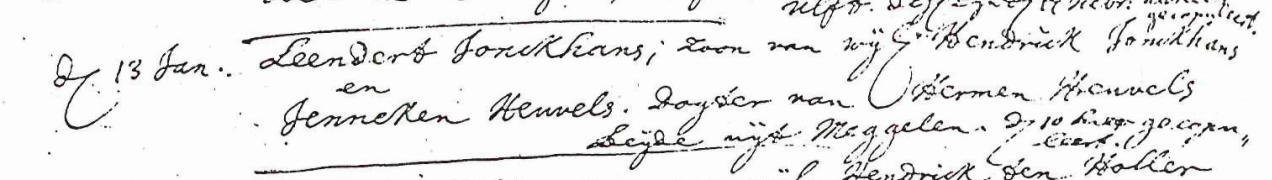 ulft.
gecopuleert.
d 13 Jan. Leendert Jonckhans, zoon van wijl Hendrick Jonckhans
en
Jenneken Heuvels. Dogter van Hermen Heuvels
beijde uijt Meggelen. d 10 gecopu,,
leert.
Hendrick ten Holler